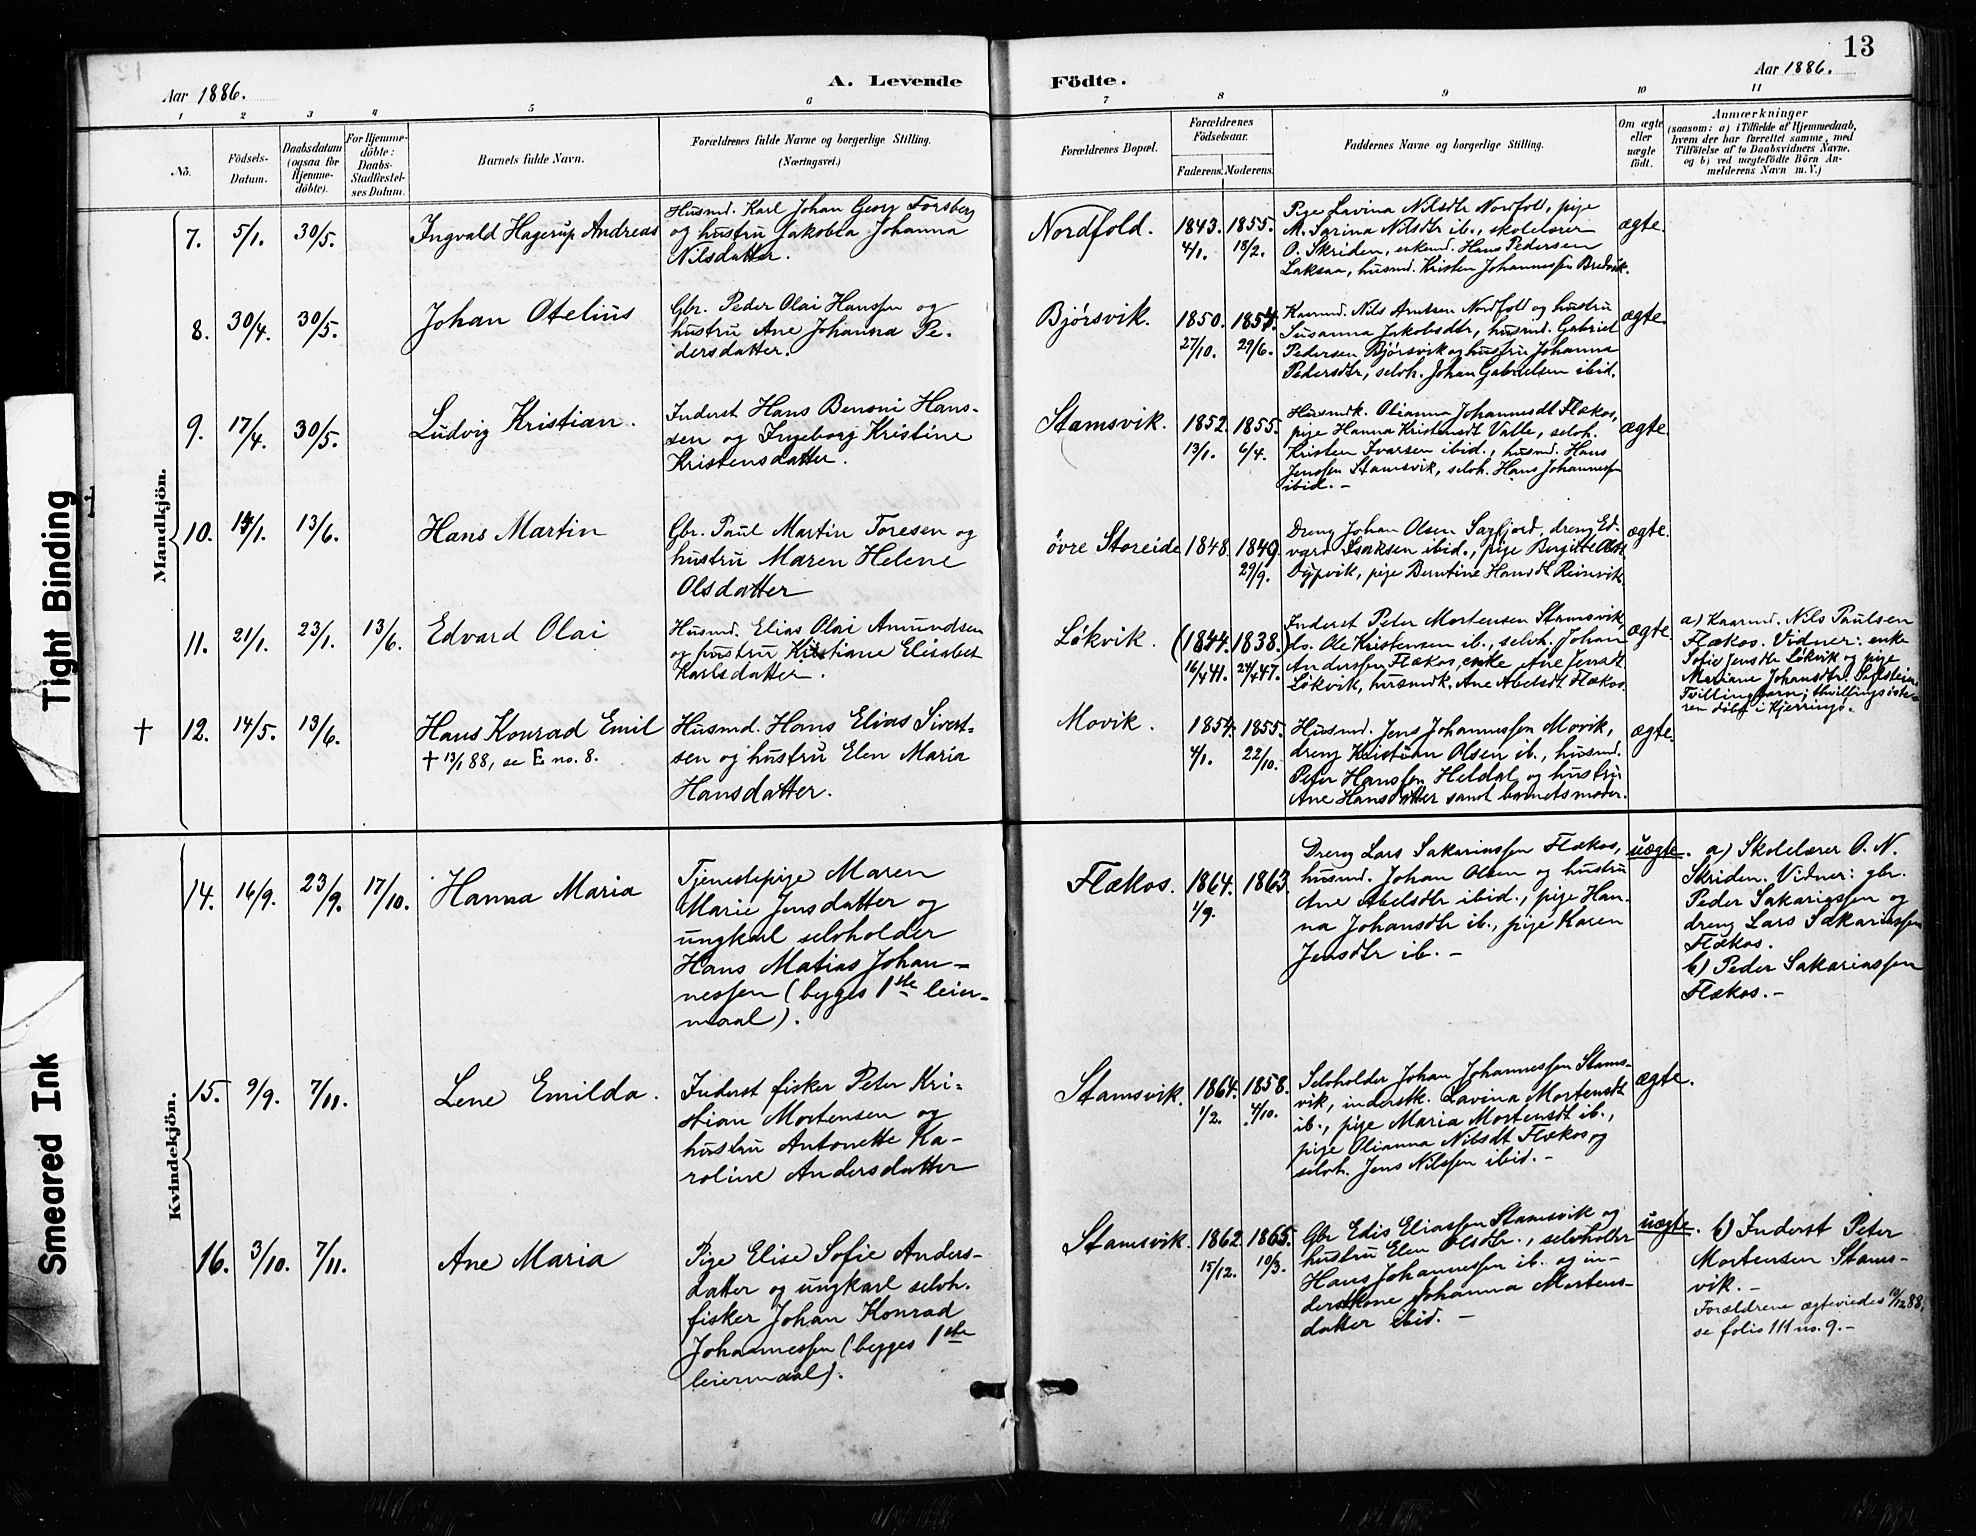 13
Aar 1886.
A. Levende
Födte.
Aar 1886.
1
2
3
4
5
6
7
8
9
10
11
No.
Födsels-
Datum.
Daabsdatum
(ogsaa for
Hjemme-
döbte).
For Hjemme-
döbte:
Daabs-
Stadfæstel-
ses Datum.
Barnets fulde Navn.
Forældrenes fulde Navne og borgerlige Stilling.
(Næringsvei.)
Forældrenes Bopæl.
Forældrenes
Födselsaar.
Faderens.
Moderens.
Faddernes Navne og borgerlige Stilling.
Om ægte
eller
uægte
födt.
Anmærkninger
(saasom: a) i Tilfælde af Hjemmedaab,
hvem der har forrettet samme, med
Tilföielse af to Daabsvidners Navne,
og b) ved uægtefödte Börn An-
melderens Navn m. V.)
Mandkjön.
7.
5/1.
30/5.
Ingvald Hagerup Andreas
Husmd. Karl Johan Georg Forsberg
og hustru Jakobia Johanna
Nilsdatter.
Nordfold.
1843.
4/1.
1855.
18/2.
Pige Lavina Nilsdtr Nordfold, pige
M. Sarina Nilsdtr ib., skolelærer
O. Skriden, enkemd. Hans Pedersen
Laksaa, husmd. Kristen Johannessen Bredvik.
ægte.
8.
30/4.
30/5.
Johan Otelius
Gbr. Peder Olai Hanssen og
hustru Ane Johanna Pe-
dersdatter.
Bjórsvik.
1850.
27/10.
1854.
29/6.
Kaarmd. Nils Arntsen Nordfold og hustru
Susanna Jakobsdtr, husmd. Gabriel
Pedersen Bjórsvik og hustru Johanna
Pedersdtr, selvh. Johan Gabrielsen ibid.
ægte.
9.
17/4.
30/5.
Ludvig Kristian.
Inderst Hans Benoni Hans-
sen og Ingeborg Kristine
Kristensdatter.
Stamsvik.
1852.
13/1.
1855.
6/4.
Husmdk. Olianna Johannesdt Flækos,
pige Hanna Kristensdt Valle, selvh.
Kristen Ivarsen ibid., husmd. Hans
Jenssen Stamsvik, selvh. Hans Johannessen
ibid. -
ægte.
10.
14/1.
13/6.
Hans Martin
Gbr. Paul Martin Toresen og
hustru Maren Helene
Olsdatter
óvre Storeide
1848.
1849.
29/9.
Dreng Johan Olsen Sagfjord, dreng Ed-
vard Isaksen ibid., pige Birgitte Olsdt
Dypvik, pige Berntine Hansdt Reinsvik
ægte.
11.
21/1.
23/1.
13/6.
Edvard Olai
Husmd. Elias Olai Amundsen
og hustru Kristiane Elisabet
Karlsdatter.
Lókvik.
(1844.
16/4 41.
1838.)
24/4 47.
Inderst Peter Mortensen Stamsvik
do. Ole Kristensen ib., selvh. Johan
Anderssen Flækos, enke Ane Jensdt
Lókvik, husmdk. Ane Abelsdt Flækos.
ægte.
a) Kaarmd. Nils Paulsen
Flækos. Vidner: enke
Sofie Jensdtr Lókvik og pige
Mariane Johansdtr
Tvillingbarn; thvillingsóste-
ren dóbt i Kjerringó.
†
12.
14/5.
13/6.
Hans Konrad Emil
† 13/1 88, se E no. 8.
Husmd. Hans Elias Sivert-
sen og hustru Elen Maria
Hansdatter.
Movik.
1854.
4/1.
1855.
22/10.
Husmd. Jens Johannessen Movik,
dreng Kristian Olsen ib., husmd.
Peter Hanssen Heldal og hustru
Ane Hansdatter samt barnets moder.
ægte.
Kvindekjön.
14.
16/9.
23/9.
17/10.
Hanna Maria
Tjenestepige Maren
Marie Jensdatter og
ungkarl selvholder
Hans Matias Johan-
nessen (begges 1ste leier-
maal).
Flækos.
1864.
1/9.
1863.
Dreng Lars Sakariassen Flækos,
husmd. Johan Olsen og hustru
Ane Abelsdtr ibid., pige Han-
na Johansdtr ib., pige Karen
Jensdtr ib. -
uægte.
a) Skolelærer O. N.
Skriden. Vidner: gbr.
Peder Sakariassen og
dreng Lars Sakariassen
Flækos.
b) Peder Sakariassen
Flækos. -
15.
9/9.
7/11.
Lene Emilda.
Inderst fisker Peter Kri-
stian Mortensen og
hustru Antonette Ka-
roline Andersdatter
Stamsvik.
1864.
1/2.
1858.
4/10.
Selvholder Johan Johannessen Stams-
vik, inderstk. Lavina Mortensdt
ib., pige Maria Mortensdt ib.,
pige Olianna Nilsdt Flækos og
selvh. Jens Nilssen ibid. -
ægte.
16.
3/10.
7/11.
Ane Maria
Pige Elise Sofie Anders-
datter og ungkarl selvh.
fisker Johan Konrad
Johannessen (begges 1ste
leiermaal).
Stamsvik.
1862.
15/12.
1865.
10/3.
Gbr Edis Eliassen Stamsvik og
hustru Elen Olsdtr., selvholder
Hans Johannessen ib. og in-
derstkone Johanna Mortens-
datter ibid. -
uægte.
b) Inderst Peter
Mortensen Stams-
vik. -
Forældrene ægteviedes 10/12 88,
se folio 111 no. 9. -
Tight Binding
Smeared Ink